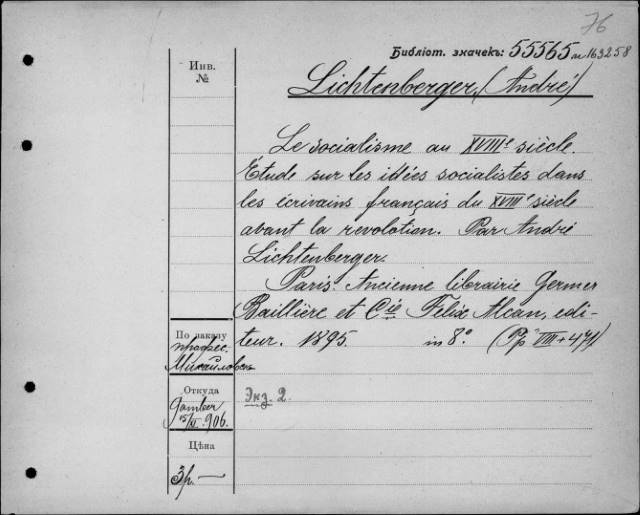 76
Библіот. значекъ: 55565 ан 163258
Инв.
№
Lichtenberger, (André)
Le socialisme au XVIIIe siècle.
Étude sur les idées socialistes dans
les écrivains français du XVIIIe siècle
avant la revolution. Par André
Lichtenberger.
Paris. Ancienne librairie Germer
Baillière et Cie Felix Alcan, edi-
teur. 1895. in 8º. (Pp VIII + 471)
По заказу
профес.
Михайловск
Откуда
15/XI 906.
Экз. 2.
Цѣна
3 р. —